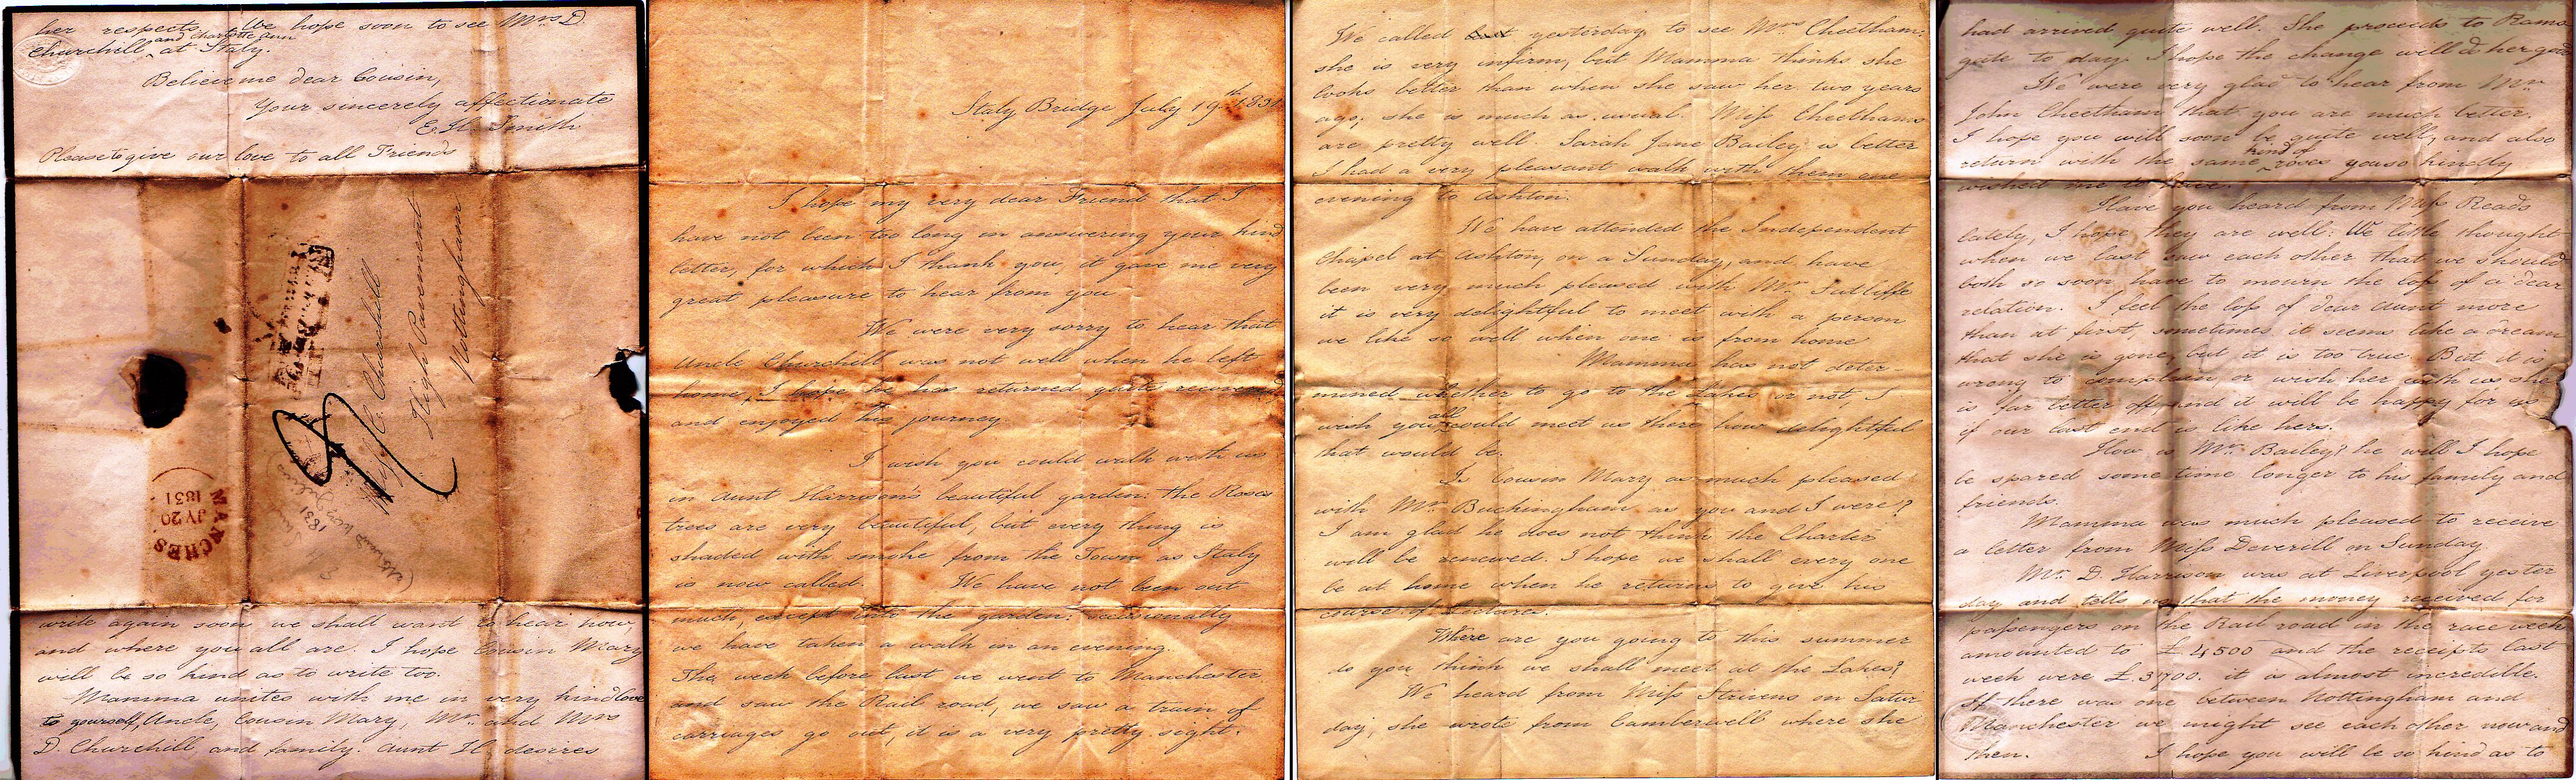 her respects. We hope soon to see Mrs D.
Churchill and Charlotte Ann at Staly.
Believe me dear Cousin,
Your sincerely affectionate
E. H. Smith
Please to give our love to all Friends
Miss C. Churchill
High Pavement
Nottingham
MANCHES
JY 20
1831
1831
write again soon we shall want to hear how,
and where you all are. I hope Cousin Mary
will be so kind as to write too.
Mamma unites with me in very kind love
to yourself, Uncle, Cousin Mary, Mr. and Mrs
D. Churchill, and family. Aunt H. desires
Staly Bridge July 19th 1831
I hope my very dear Friend that I
have not been too long in answering your kind
letter, for which I thank you, it gave me very
great pleasure to hear from you
We were very sorry to hear that
Uncle Churchill was not well when he left
home, I hope he has returned quite recovered
and enjoyed his journey.
I wish you could walk with us
in Aunt Harrison's beautiful garden: the Roses
trees are very beautiful, but every thing is
shaded with smoke from the Town as Staly
is now called. We have not been out
much, except into the garden: occasionally
we have taken a walk in an evening.
The week before last we went to Manchester
and saw the Rail road, we saw a train of
carriages go out, it is a very pretty sight.
We called yesterday to see Mrs Cheetham:
she is very infirm, but Mamma thinks she
looks better than when she saw her two years
ago; she is much as usual. Miss Cheethams
are pretty well. Sarah Jane Bailey is better
I had a very pleasant walk with them one
evening to Ashton.
We have attended the Independent
Chapel at Ashton, on a Sunday, and have
been very much pleased with Mr. Sutcliffe
it is very delightful to meet with a person
we like so well when one is from home
Mamma has not deter-
mined whether to go to the Lakes or not, I
wish you all could meet us there how delightful
that would be.
Is Cousin Mary as much pleased
with Mr. Buckingham as you and I were?
I am glad he does not think the Charter
will be renewed. I hope we shall every one
be at home when he returns to give his
course of Lectures.
Where are you going to this summer
do you think we shall meet at the Lakes?
We heard from Miss Strivens on Satur
day, she wrote from Camberwell where she
had arrived quite well. She proceeds to Rams
gate to day. I hope the change will do her good
We were very glad to hear from Mr.
John Cheetham that you are much better.
I hope you will soon be quite well, and also
return with the same kind of roses you so kindly
wished me to have.
Have you heard from Miss Reads
lately, I hope they are well: We little thought
when we last saw each other that we should
both so soon have to mourn the loss of a dear
relation. I feel the loss of dear Aunt more
than at first, sometimes it seems like a dream
that she is gone, but it is too true. But it is
wrong to complain, or wish her with us, she
is far better off, and it will be happy for us
if our last end is like hers.
How is Mr. Bailey? he will I hope
be spared some time longer to his family and
friends.
Mamma was much pleased to receive
a letter from Miss Deverill on Sunday
Mr. D. Harrison was at Liverpool yester
day and tells us that the money received for
passengers on the Rail road in the race week
amounted to £4500 and the receipts last
week were £3700. it is almost incredible.
If there was one between Nottingham and
Manchester we might see each other now and
then. I hope you will be so kind as to